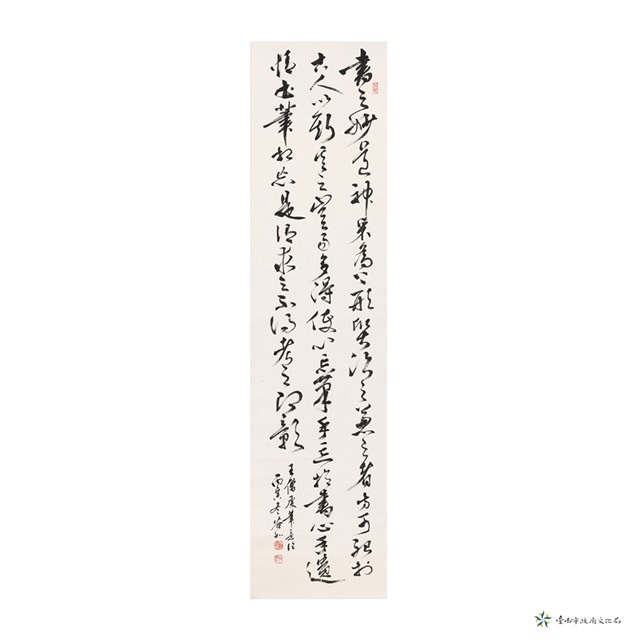 書之妙道神采為上形質次之兼之者方可紹於
古人以斯言之豈易多得使心忘筆手忘於書心手遺
情書筆相忘是謂求之不得考之即彰
王僧虔筆意
丙寅冬
臺南市政府文化局